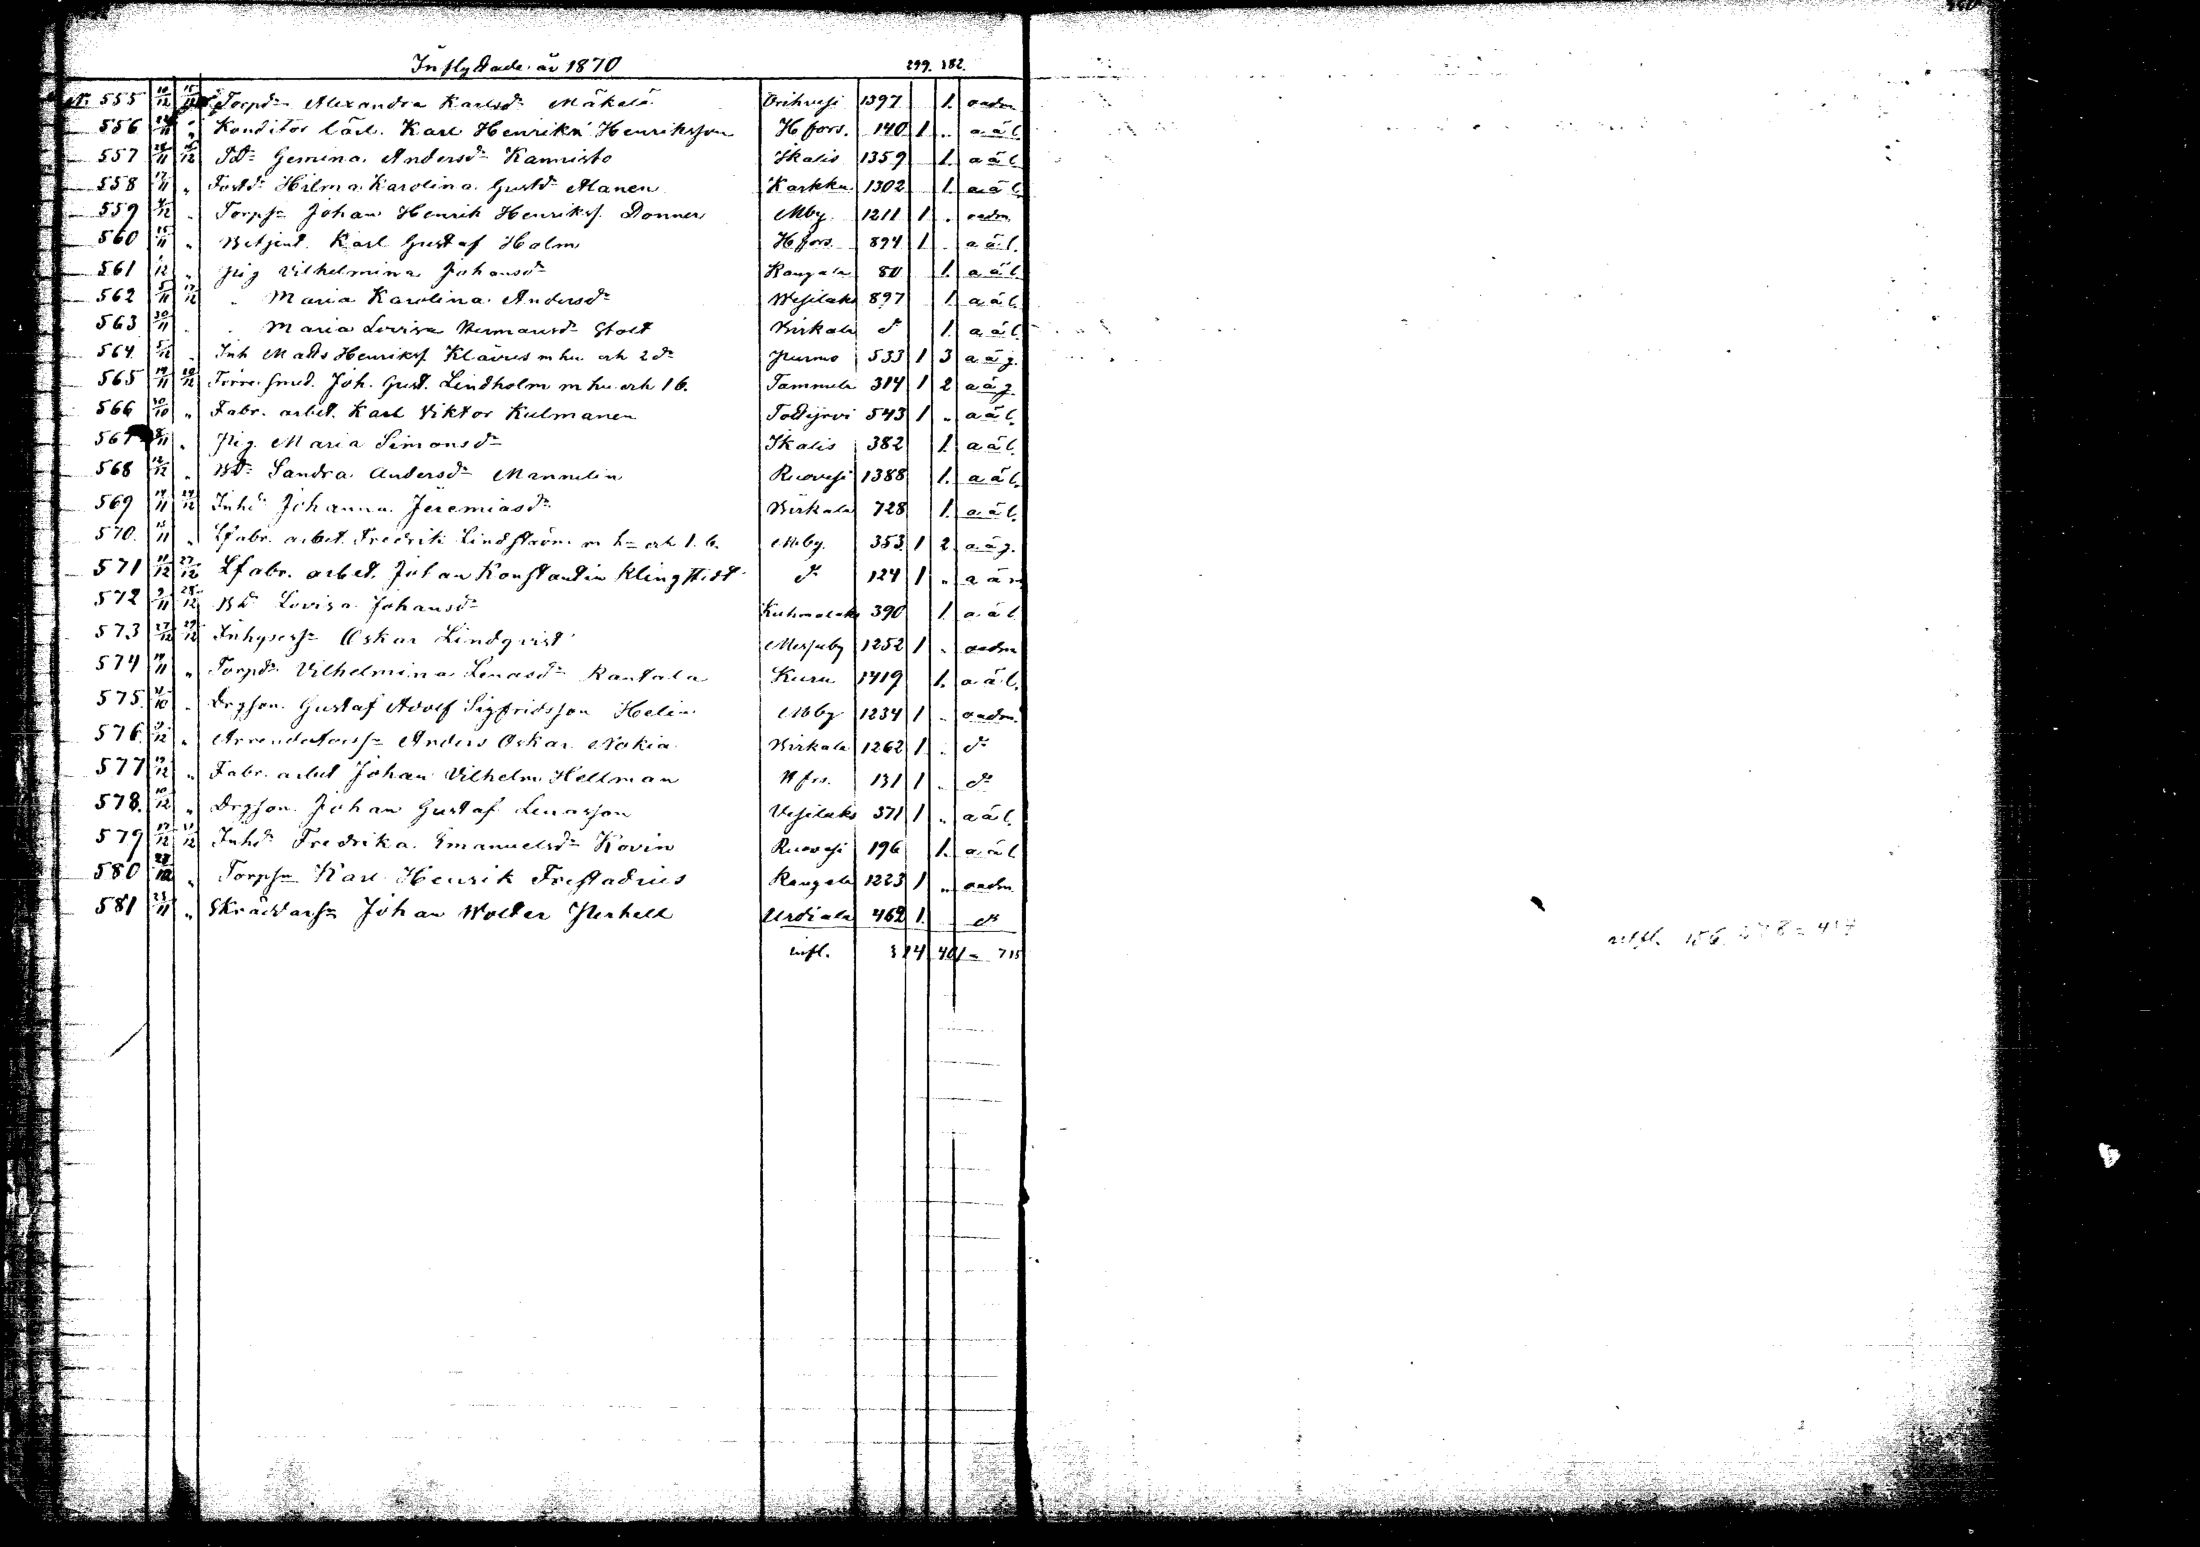 Inflyttade år 1870 299. 382.
N: 555 10/12 15/12 Torpdr Alexandra Karlsdr Mäkelä Orihvesi 1397 1. oadm
556 Konditor lärl. Karl Henrikn Henriksson Hfors. 140 1 " a ä l.
557 28/11 16/12 Tdr Gemina Andersdr Kannisto Ikalis 1359 1. a ä l.
558 17/11 " Tostdr Hilma Karolina Gustdr Alanen Karkku 1302 1. a ä l.
559 4/12 " Torpsn Johan Henrik Henrikss. Donner Mby. 1211 1 " oadm.
560 15/11 " Betjent Karl Gustaf Holm Hfors. 894 1 " a ä l.
561 1/12 " Pig Vilhelmina Johansdr Kangala 80 1. a ä l.
562 5/11 17/12 " Maria Karolina Andersdr Wesilaks 897 1. a ä l.
563 30/11 " " Maria Lovisa Hermansdr Stolt Birkala dr 1. a ä l.
564 5/12 " Inh Matts Henrikss. Klavus m hu och 2 dr Purmo 533 1 3 a ä g.
565 19/11 19/12 smed. Joh. Gust. Lindholm m hu och 1 b. Tammela 314 1 2 a ä g.
566 30/10 " Fabr. arbet. Karl Viktor Kulmanen Tottijrvi 543 1 " a ä l.
567 8/11 " Pig. Maria Simonsdr Ikalis 382 1. a ä l.
568 12/12 " Bdr Sandra Andersdr Mannelin Ruovesi 1388 1. a ä l.
569 14/11 24/12 Inhdr Johanna Jeremiasdr Birkala 728 1. a ä l.
570. 15/11 " Lfabr. arbet. Fredrik Lindström m hu och 1. b. Mby. 353 1 2 a ä g.
571 10/12 27/12 Lfabr. arbet. Johan Konstantin Klingstedt dr 124 1 "
572 2/11 28/12 Bdr Lovisa Johansdr Kuhmalaks 390 1 a ä l
573 27/12 29/12 Inhysessn Oskar Lindqvist Messuby 1252 1 " oadm
574 14/11 " Torpdr Vilhelmina Lenasdr Rantala Kuru 1419 1. a ä l.
575. " Drgson. Gustaf Adolf Sigfridsson Helin Mby 1234 1 " oadm.
576. " Arrendatorssn Anders Oskar Nokia Birkala 1262 1. " dr
577 " Fabr. arbet Johan Vilhelm Hellman Hfrs. 131 1 " dr
578. 10/12 " Drgson Johan Gustaf Lenasson Vesilaks 371 1 " a ä l.
579 17/12 31/12 Inhdr Fredrika Emanuelsdr Kovin Ruovesi 196 1. a ä l
580 28/12 " Torpsn Karl Henrik Frestadius Kangala 1223 1 " oadm
581 23/11 " Skräddarsn Johan Wolter Perhell Urdiala 462 1. dr
infl. 314 401 = 715
utfl.